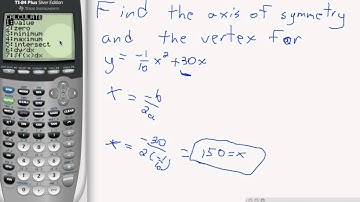 TI-84 Plus Silver Edition
CALCULATE
1:value
2:zero
3:minimum
4:maximum
5:intersect
6:dy/dx
7:∫f(x)dx
Find the axis of symmetry
and the vertex for
y = -1/10 x² + 30x
x = -b/2a
x = -30/2(-1/10) = 150 = x